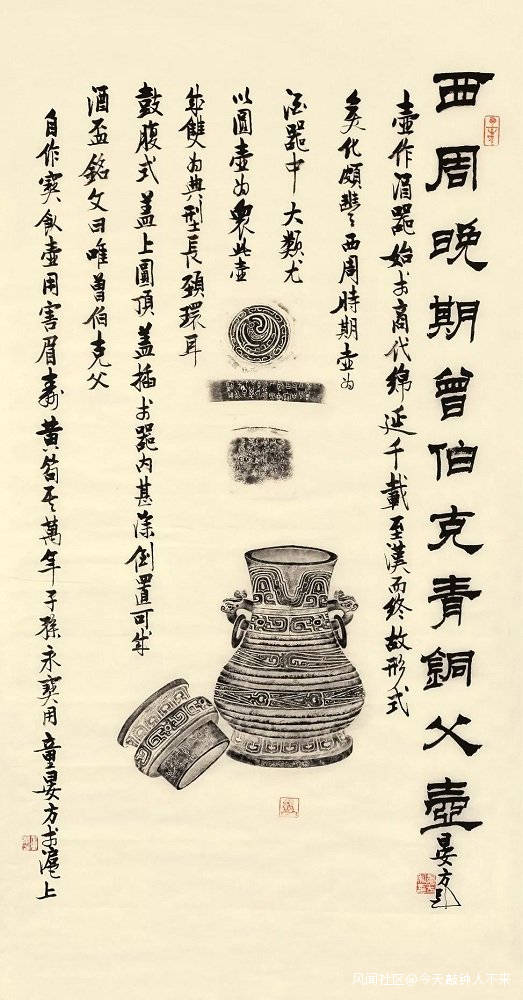 西周晚期曾伯克青銅父壺
晏方題
壺作酒器始於商代綿延千載至漢而終故形式
多變化頗豐西周時期壺為
酒器中大類尤
以圓壺為眾此壺
成雙為典型長頸環耳
鼓腹式蓋上圓頂蓋插於器內甚深倒置可成
酒盃銘文曰唯曾伯克父
自作寶飲壺用害眉壽黃耇其萬年子孫永寶用童晏方於滬上
风闻社区@今天敲钟人不来